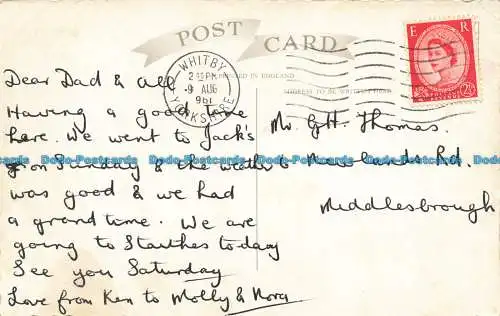 POST CARD
E R
WHITBY
2 PM
9 AUG
1961
YORKSHIRE
PRINTED IN ENGLAND
ADDRESS TO BE WRITTEN HERE
POSTAGE
2½D
Dear Dad & All
Having a good time
here. We went to Jack's
on Sunday & the weather
was good & we had
a grand time. We are
going to Staithes today
See you Saturday
Love from Ken to Molly & Nora
Mr. G.H. Thomas.
Newlands Rd.
Middlesbrough
Dodo-Postcards Dodo-Postcards Dodo-Postcards Dodo-Postcards